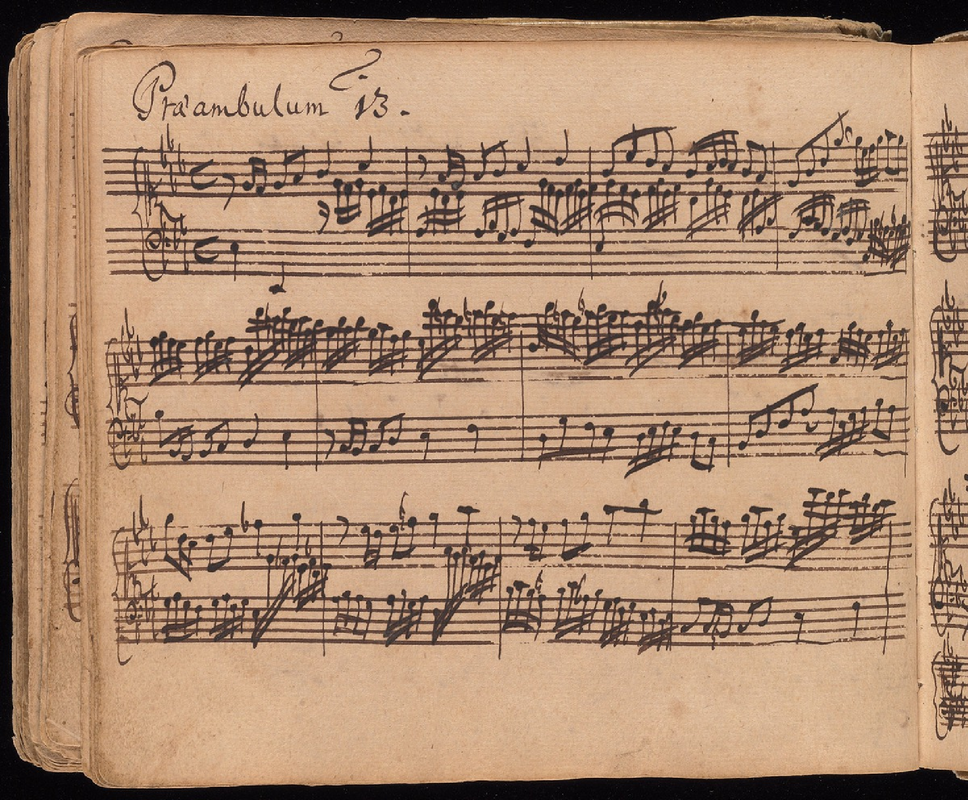 Præambulum 13.